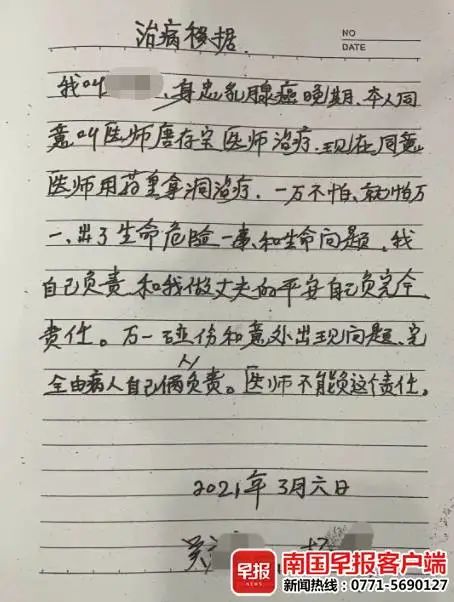 NO
治病移据.
DATE
我叫 、身患乳腺癌晚期、本人同
意叫医师唐存宝医师治疗、现在同意
医师用药里拿洞治疗.一万不怕、就怕万
一、出了生命危险一事、和生命问题、我
自己负责、和我做丈夫的平安自己负完全
责任。万一碰伤和意外出现问题、完
全由病人自己俩人负责。医师不能负这个责任。
2021年3月六日
吴
早报 南国早报客户端
新闻热线:0771-5690127